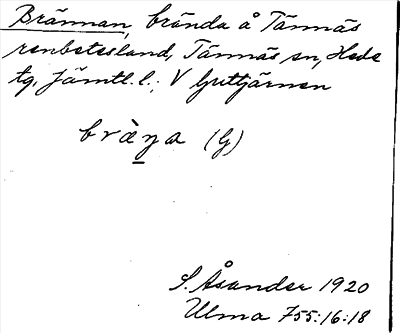 Brännan, brända å Tännäs
renbetesland, Tännäs sn, Hede
tg, Jämtl. l.; V Guttjärnen
bràŋa (G)
S. Åsander 1920
Ulma 755:16:18